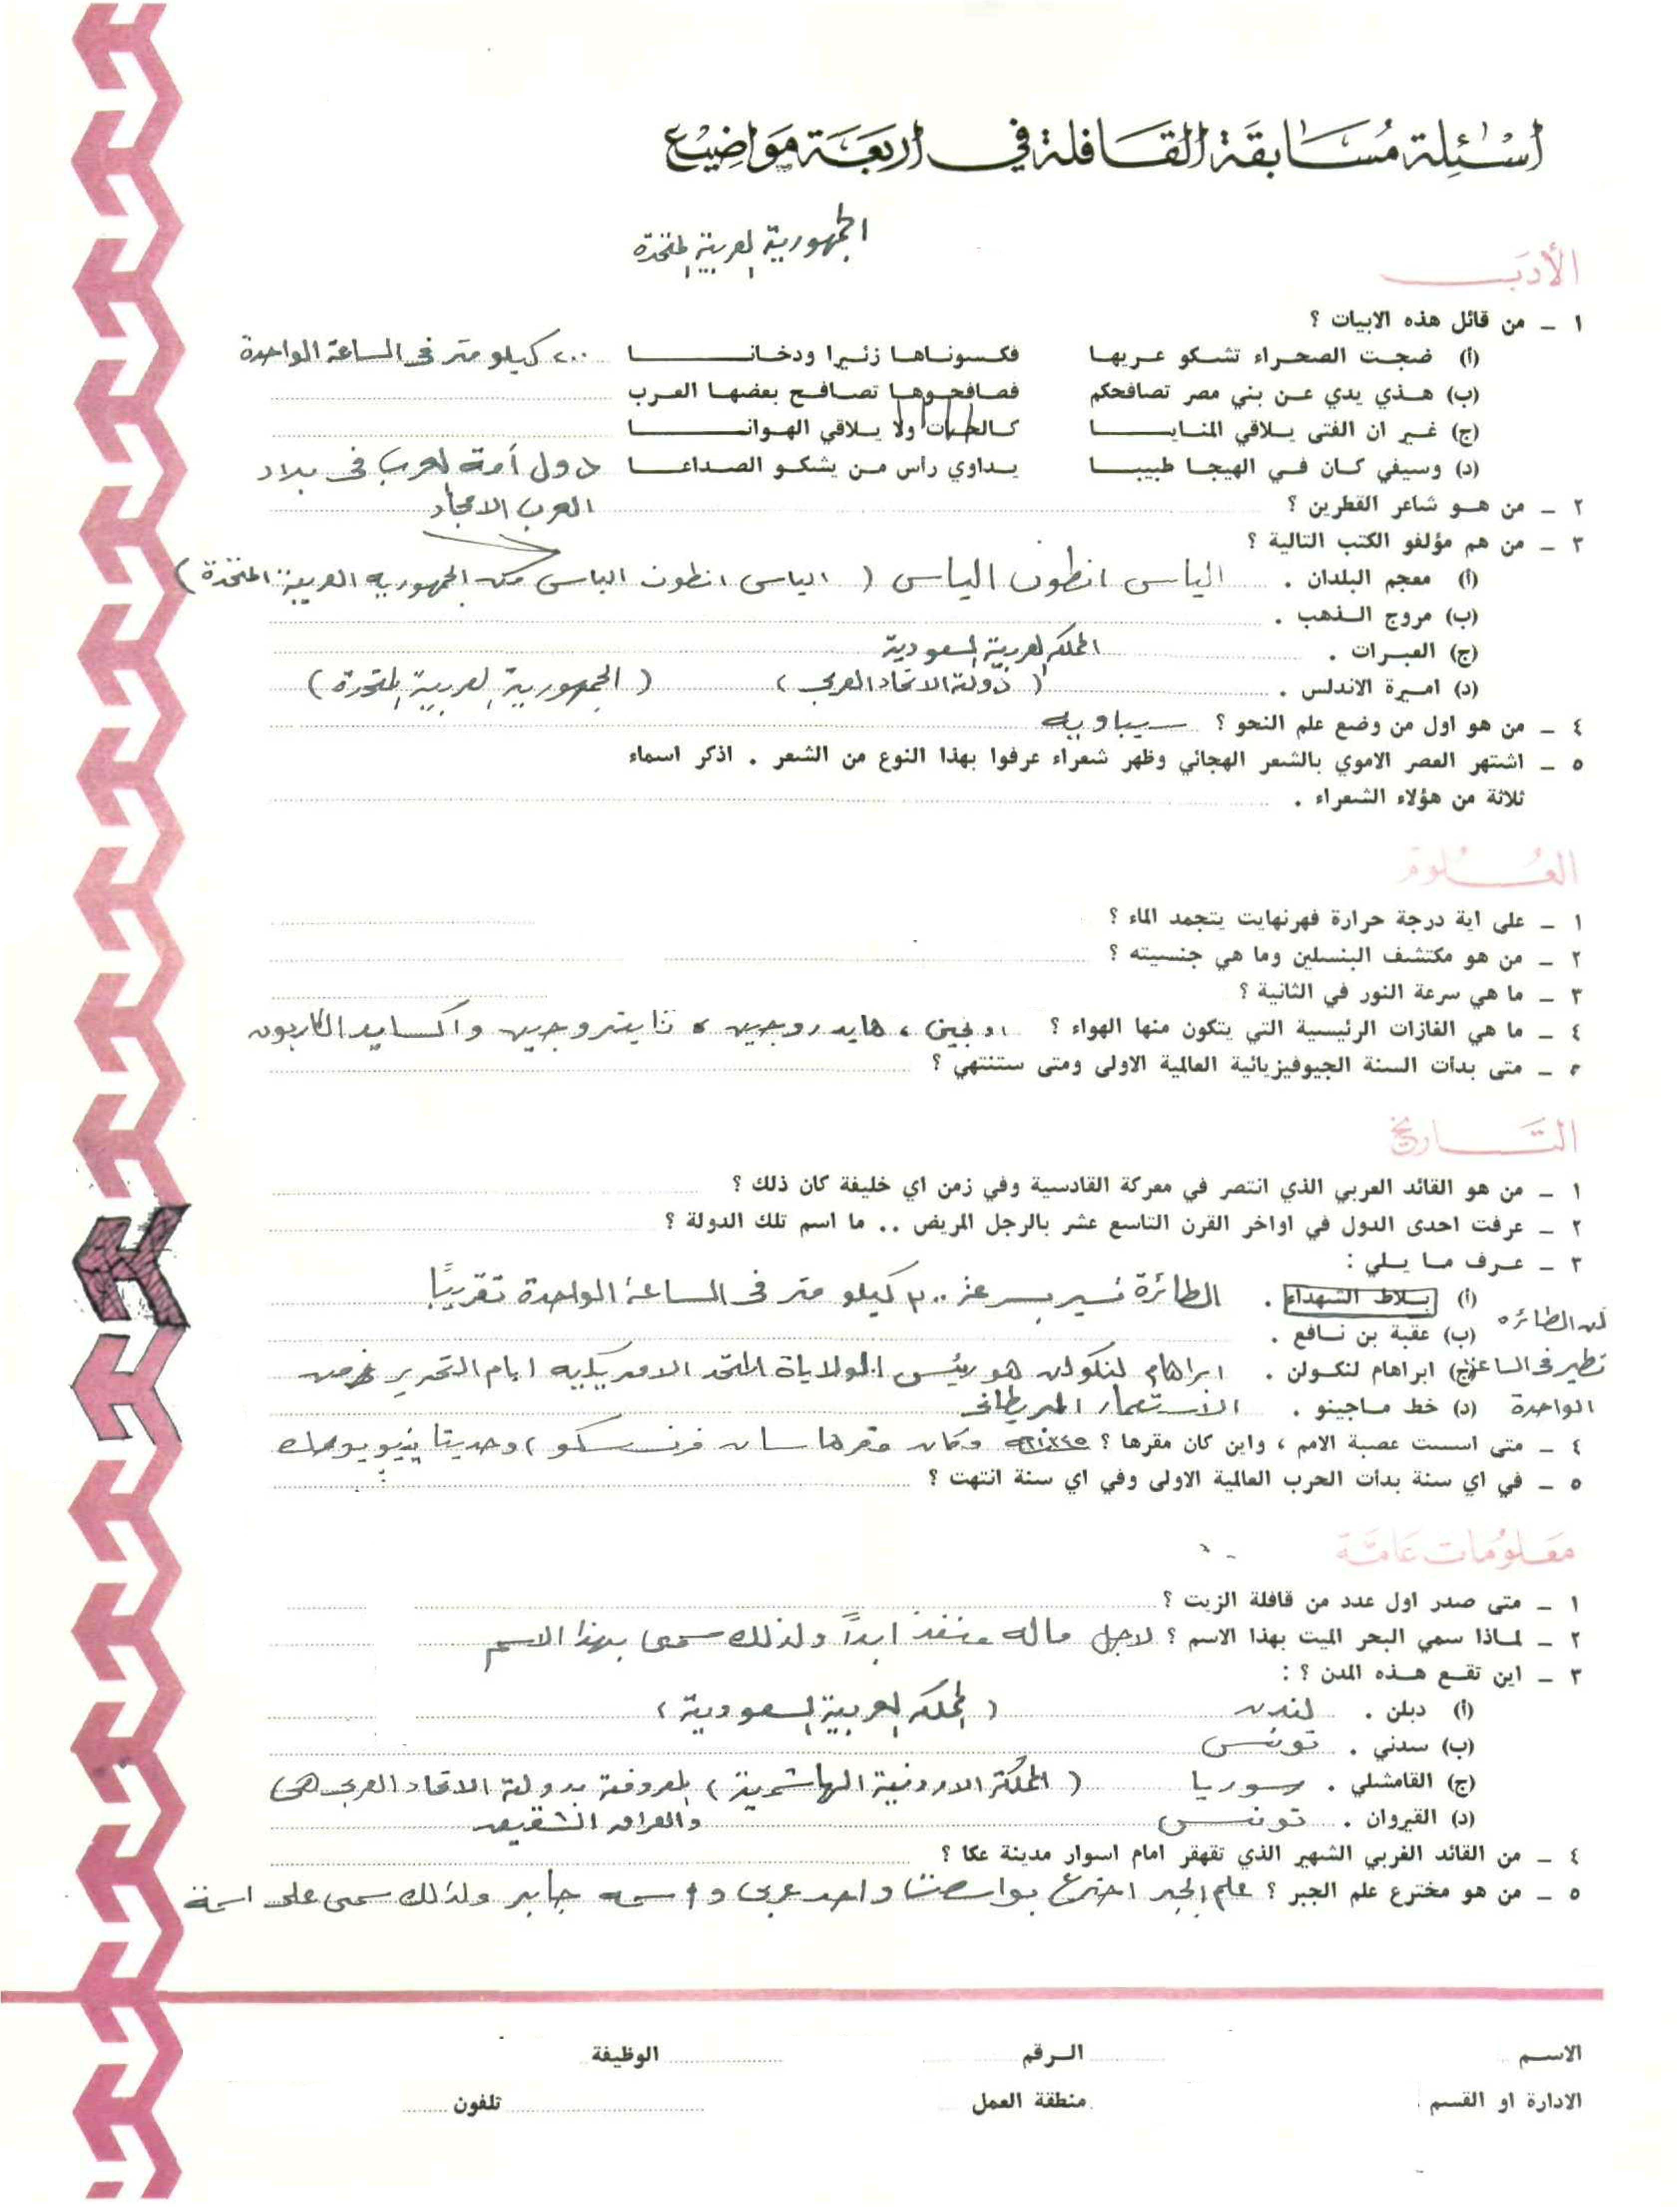 أسئلة مسابقة القافلة في أربعة مواضيع
الجمهورية العربية المتحدة
الأدب
١ – من قائل هذه الابيات ؟
(أ) ضجت الصحراء تشكو عريها فكسوناها زئيرا ودخانا ٢٠٠ كيلو متر فى الساعة الواحدة
(ب) هذي يدي عن بني مصر تصافحكم فصافحوها تصافح بعضها العرب
(ج) غير ان الفتى يلاقي المنايا كالحات ولا يلاقي الهوانا
(د) وسيفي كان في الهيجا طبيبا يداوي راس من يشكو الصداعا دول أمة العرب فى بلاد
٢ – من هو شاعر القطرين ؟ العرب الامجاد
٣ – من هم مؤلفو الكتب التالية ؟
(أ) معجم البلدان . الياس انطون الياس ( الياس انطون الياس من الجمهورية العربية المتحدة )
(ب) مروج الذهب .
(ج) العبرات . المملكة العربية السعودية
(د) اميرة الاندلس . ( دولة الاتحاد العربى ) ( الجمهورية العربية المتحدة )
٤ – من هو اول من وضع علم النحو ؟ سيباويه
٥ – اشتهر العصر الاموي بالشعر الهجائي وظهر شعراء عرفوا بهذا النوع من الشعر . اذكر اسماء
ثلاثة من هؤلاء الشعراء .
العلوم
١ – على اية درجة حرارة فهرنهايت يتجمد الماء ؟
٢ – من هو مكتشف البنسلين وما هي جنسيته ؟
٣ – ما هي سرعة النور في الثانية ؟
٤ – ما هي الغازات الرئيسية التي يتكون منها الهواء ؟ هايدروجين ، نايتروجين واكسايد الكاربون
٥ – متى بدأت السنة الجيوفيزيائية العالمية الاولى ومتى ستنتهي ؟
التاريخ
١ – من هو القائد العربي الذي انتصر في معركة القادسية وفي زمن اي خليفة كان ذلك ؟
٢ – عرفت احدى الدول في اواخر القرن التاسع عشر بالرجل المريض .. ما اسم تلك الدولة ؟
٣ – عرف ما يلي :
(أ) بلاط الشهداء . الطائرة تسير بسرعة ٣٠٠ كيلو متر فى الساعة الواحدة تقريبًا
لان الطائره
(ب) عقبة بن نافع .
تطير فى الساعة
(ج) ابراهام لنكولن . ابراهام لنكولن هو رئيس الولاياة المتحد الامريكيه ايام التحرير من
الواحدة
(د) خط ماجينو . الاستعمار البريطانى
٤ – متى اسست عصبة الامم ، واين كان مقرها ؟ وكان مقرها سان فرنسسكو ، وحديتا
٥ – في اي سنة بدأت الحرب العالمية الاولى وفي اي سنة انتهت ؟
معلومات عامة
١ – متى صدر اول عدد من قافلة الزيت ؟
٢ – لماذا سمي البحر الميت بهذا الاسم ؟ لاجل ماله منفذ ابداً ولذلك سمى بهذا الاسم
٣ – اين تقع هذه المدن ؟ :
(أ) دبلن . لندن ( المملكة العربية السعودية )
(ب) سدني . تونس
(ج) القامشلي . سوريا ( المملكة الاردنية الهاشمية ) المعروفة بدولة الاتحاد العربى هى
(د) القيروان . تونس والعراق الشقيقه
٤ – من القائد الغربي الشهير الذي تقهقر امام اسوار مدينة عكا ؟
٥ – من هو مخترع علم الجبر ؟ علم الجبر اخترع بواسطت واحد عربى واسمه جابر ولذلك سمى على اسمة
الاسم الرقم الوظيفة
الادارة او القسم منطقة العمل تلفون